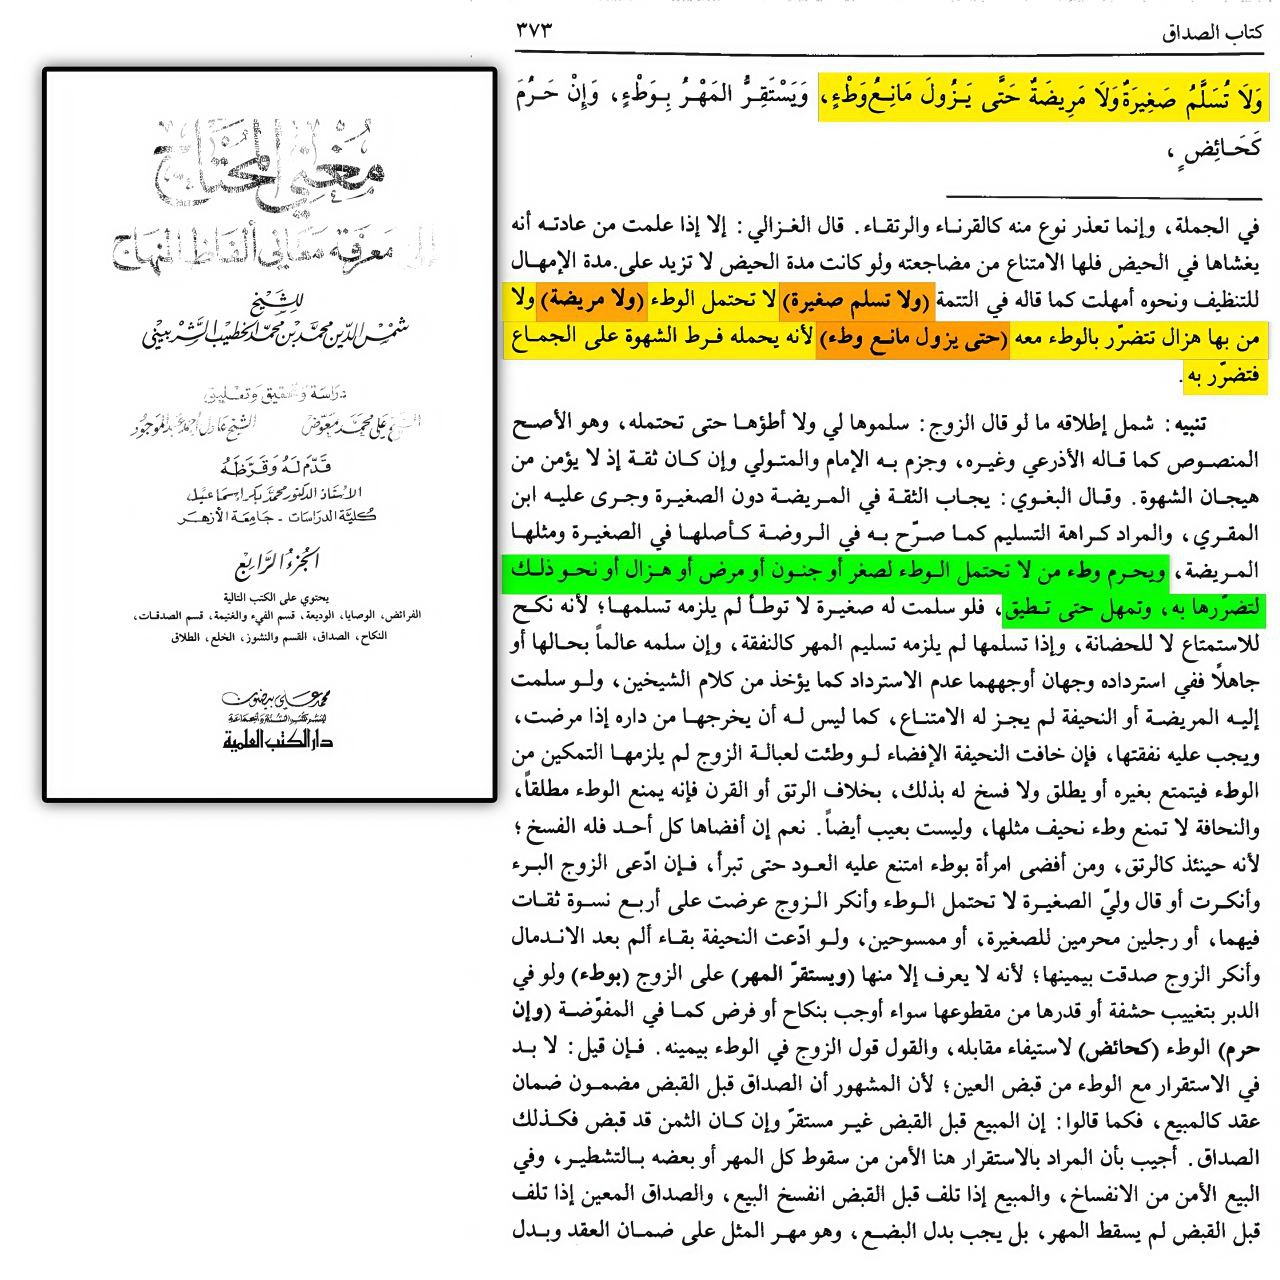 كتاب الصداق ٣٧٣
وَلَا تُسَلَّمُ صَغِيرَةٌ وَلَا مَرِيضَةٌ حَتَّى يَزُولَ مَانِعُ وَطْءٍ، وَيَسْتَقِرُّ المَهْرُ بِوَطْءٍ، وَإِنْ حَرُمَ
كَحَائِضٍ،
في الجملة، وإنما تعذر نوع منه كالقرناء والرتقاء. قال الغزالي: إلا إذا علمت من عادته أنه
يغشاها في الحيض فلها الامتناع من مضاجعته ولو كانت مدة الحيض لا تزيد على مدة الإمهال
للتنظيف ونحوه أمهلت كما قاله في التتمة (ولا تسلم صغيرة) لا تحتمل الوطء (ولا مريضة) ولا
من بها هزال تتضرّر بالوطء معه (حتى يزول مانع وطء) لأنه يحمله فرط الشهوة على الجماع
فتضرّر به.
تنبيه: شمل إطلاقه ما لو قال الزوج: سلموها لي ولا أطؤها حتى تحتمله، وهو الأصح
المنصوص كما قاله الأذرعي وغيره، وجزم به الإمام والمتولي وإن كان ثقة إذ لا يؤمن من
هيجان الشهوة. وقال البغوي: يجاب الثقة في المريضة دون الصغيرة وجرى عليه ابن
المقري، والمراد كراهة التسليم كما صرّح به في الروضة كأصلها في الصغيرة ومثلها
المريضة، ويحرم وطء من لا تحتمل الوطء لصغر أو جنون أو مرض أو هزال أو نحو ذلك
لتضرّرها به، وتمهل حتى تطيق، فلو سلمت له صغيرة لا توطأ لم يلزمه تسلمها؛ لأنه نكح
للاستمتاع لا للحضانة، وإذا تسلمها لم يلزمه تسليم المهر كالنفقة، وإن سلمه عالماً بحالها أو
جاهلاً ففي استرداده وجهان أوجههما عدم الاسترداد كما يؤخذ من كلام الشيخين، ولو سلمت
إليه المريضة أو النحيفة لم يجز له الامتناع، كما ليس له أن يخرجها من داره إذا مرضت،
ويجب عليه نفقتها، فإن خافت النحيفة الإفضاء لو وطئت لعبالة الزوج لم يلزمها التمكين من
الوطء فيتمتع بغيره أو يطلق ولا فسخ له بذلك، بخلاف الرتق أو القرن فإنه يمنع الوطء مطلقاً،
والنحافة لا تمنع وطء نحيف مثلها، وليست بعيب أيضاً. نعم إن أفضاها كل أحد فله الفسخ؛
لأنه حينئذ كالرتق، ومن أفضى امرأة بوطء امتنع عليه العود حتى تبرأ، فإن ادّعى الزوج البرء
وأنكرت أو قال وليّ الصغيرة لا تحتمل الوطء وأنكر الزوج عرضت على أربع نسوة ثقات
فيهما، أو رجلين محرمين للصغيرة، أو ممسوحين، ولو ادّعت النحيفة بقاء ألم بعد الاندمال
وأنكر الزوج صدقت بيمينها؛ لأنه لا يعرف إلا منها (ويستقرّ المهر) على الزوج (بوطء) ولو في
الدبر بتغييب حشفة أو قدرها من مقطوعها سواء أوجب بنكاح أو فرض كما في المفوّضة (وإن
حرم) الوطء (كحائض) لاستيفاء مقابله، والقول قول الزوج في الوطء بيمينه. فإن قيل: لا بد
في الاستقرار مع الوطء من قبض العين؛ لأن المشهور أن الصداق قبل القبض مضمون ضمان
عقد كالمبيع، فكما قالوا: إن المبيع قبل القبض غير مستقرّ وإن كان الثمن قد قبض فكذلك
الصداق. أجيب بأن المراد بالاستقرار هنا الأمن من سقوط كل المهر أو بعضه بالتشطير، وفي
البيع الأمن من الانفساخ، والمبيع إذا تلف قبل القبض انفسخ البيع، والصداق المعين إذا تلف
قبل القبض لم يسقط المهر، بل يجب بدل البضع، وهو مهر المثل على ضمان العقد وبدل
مُغْنِي المُحْتَاج
إلى مَعرفة مَعَاني ألفَاظ المنهَاج
للشيخ
شمس الدين محمد بن محمد الخطيب الشربيني
دراسة وتحقيق وتعليق
الشيخ علي محمد معوض الشيخ عادل أحمد عبد الموجود
قدّم له وقرّظه
الأستاذ الدكتور محمد بكر إسماعيل
كلية الدراسات - جامعة الأزهر
الجزء الرابع
يحتوي على الكتب التالية
الفرائض، الوصايا، الوديعة، قسم الفيء والغنيمة، قسم الصدقات،
النكاح، الصداق، القسم والنشوز، الخلع، الطلاق
محمد علي بيضون
لنشر كتب السنة والجماعة
دار الكتب العلمية